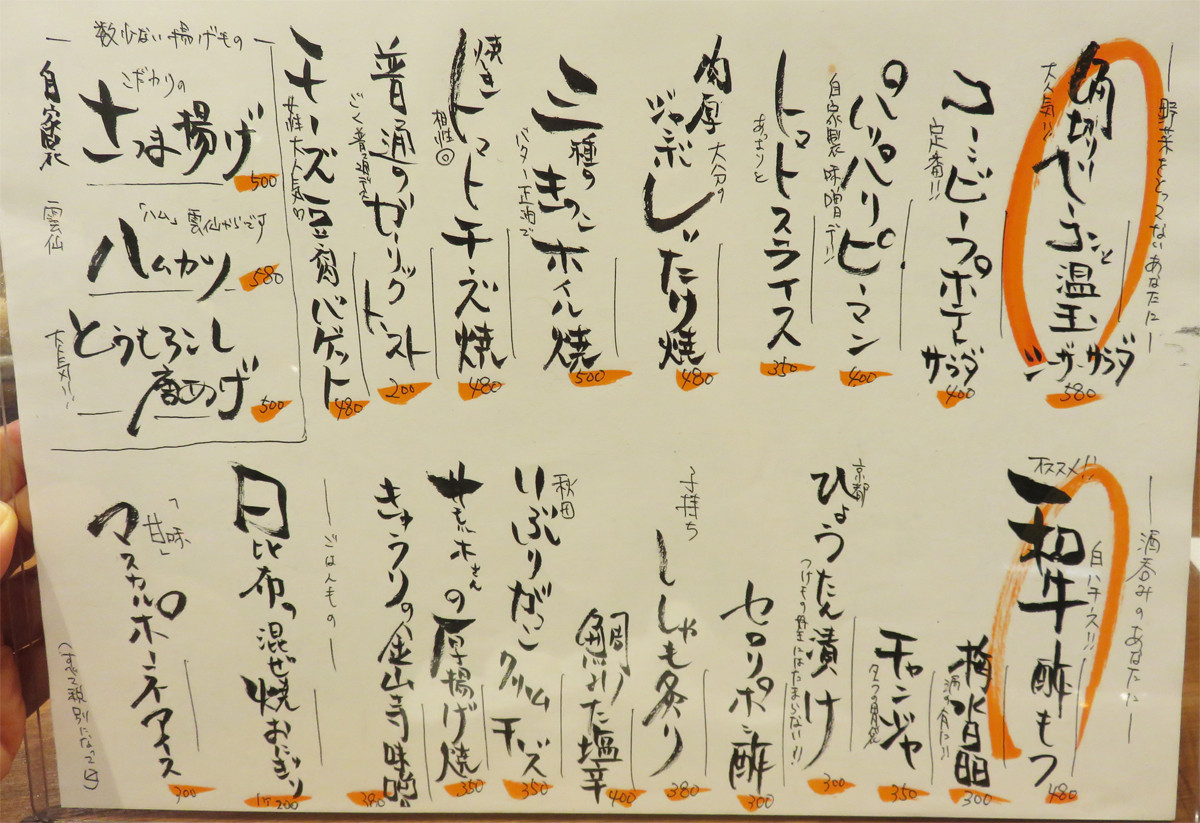 野菜をとってないあなたに
大人気!!
角切りベーコンと温玉
シーザーサラダ
580
定番!!
コンビーフポテト
サラダ
400
パリパリピーマン
自家製味噌で!!
400
トマトスライス
あっさりと
350
肉厚
大分の
ジャンボしいたけ焼
480
三種のきのこホイル焼
バター正油で
500
焼き
トマトチーズ焼
相性◎
480
普通のガーリックトースト
ごく普通です
200
チーズ豆腐バゲット
女性大人気
480
数少ない揚げもの
自家製
こだわりの
さつま揚げ
500
雲仙
「ハム」雲仙からです
ハムカツ
580
大人気!!
とうもろこし
唐あげ
500
酒呑みのあなたに
オススメ!!
和牛酢もつ
白ハチノス!!
480
梅水晶
300
チャンジャ
350
京都
ひょうたん漬け
つけもの好きにはたまらない!!
300
セロリポン酢
300
子持ち
ししゃも炙り
380
鯛わた塩辛
400
秋田
いぶりがっこクリームチーズ
350
の厚揚げ焼
350
きゅうりの金山寺味噌
380
ごはんもの
日比布の混ぜ焼おにぎり
1ヶ200
「甘味」
マスカルポーネアイス
300
(すべて税別になってます)